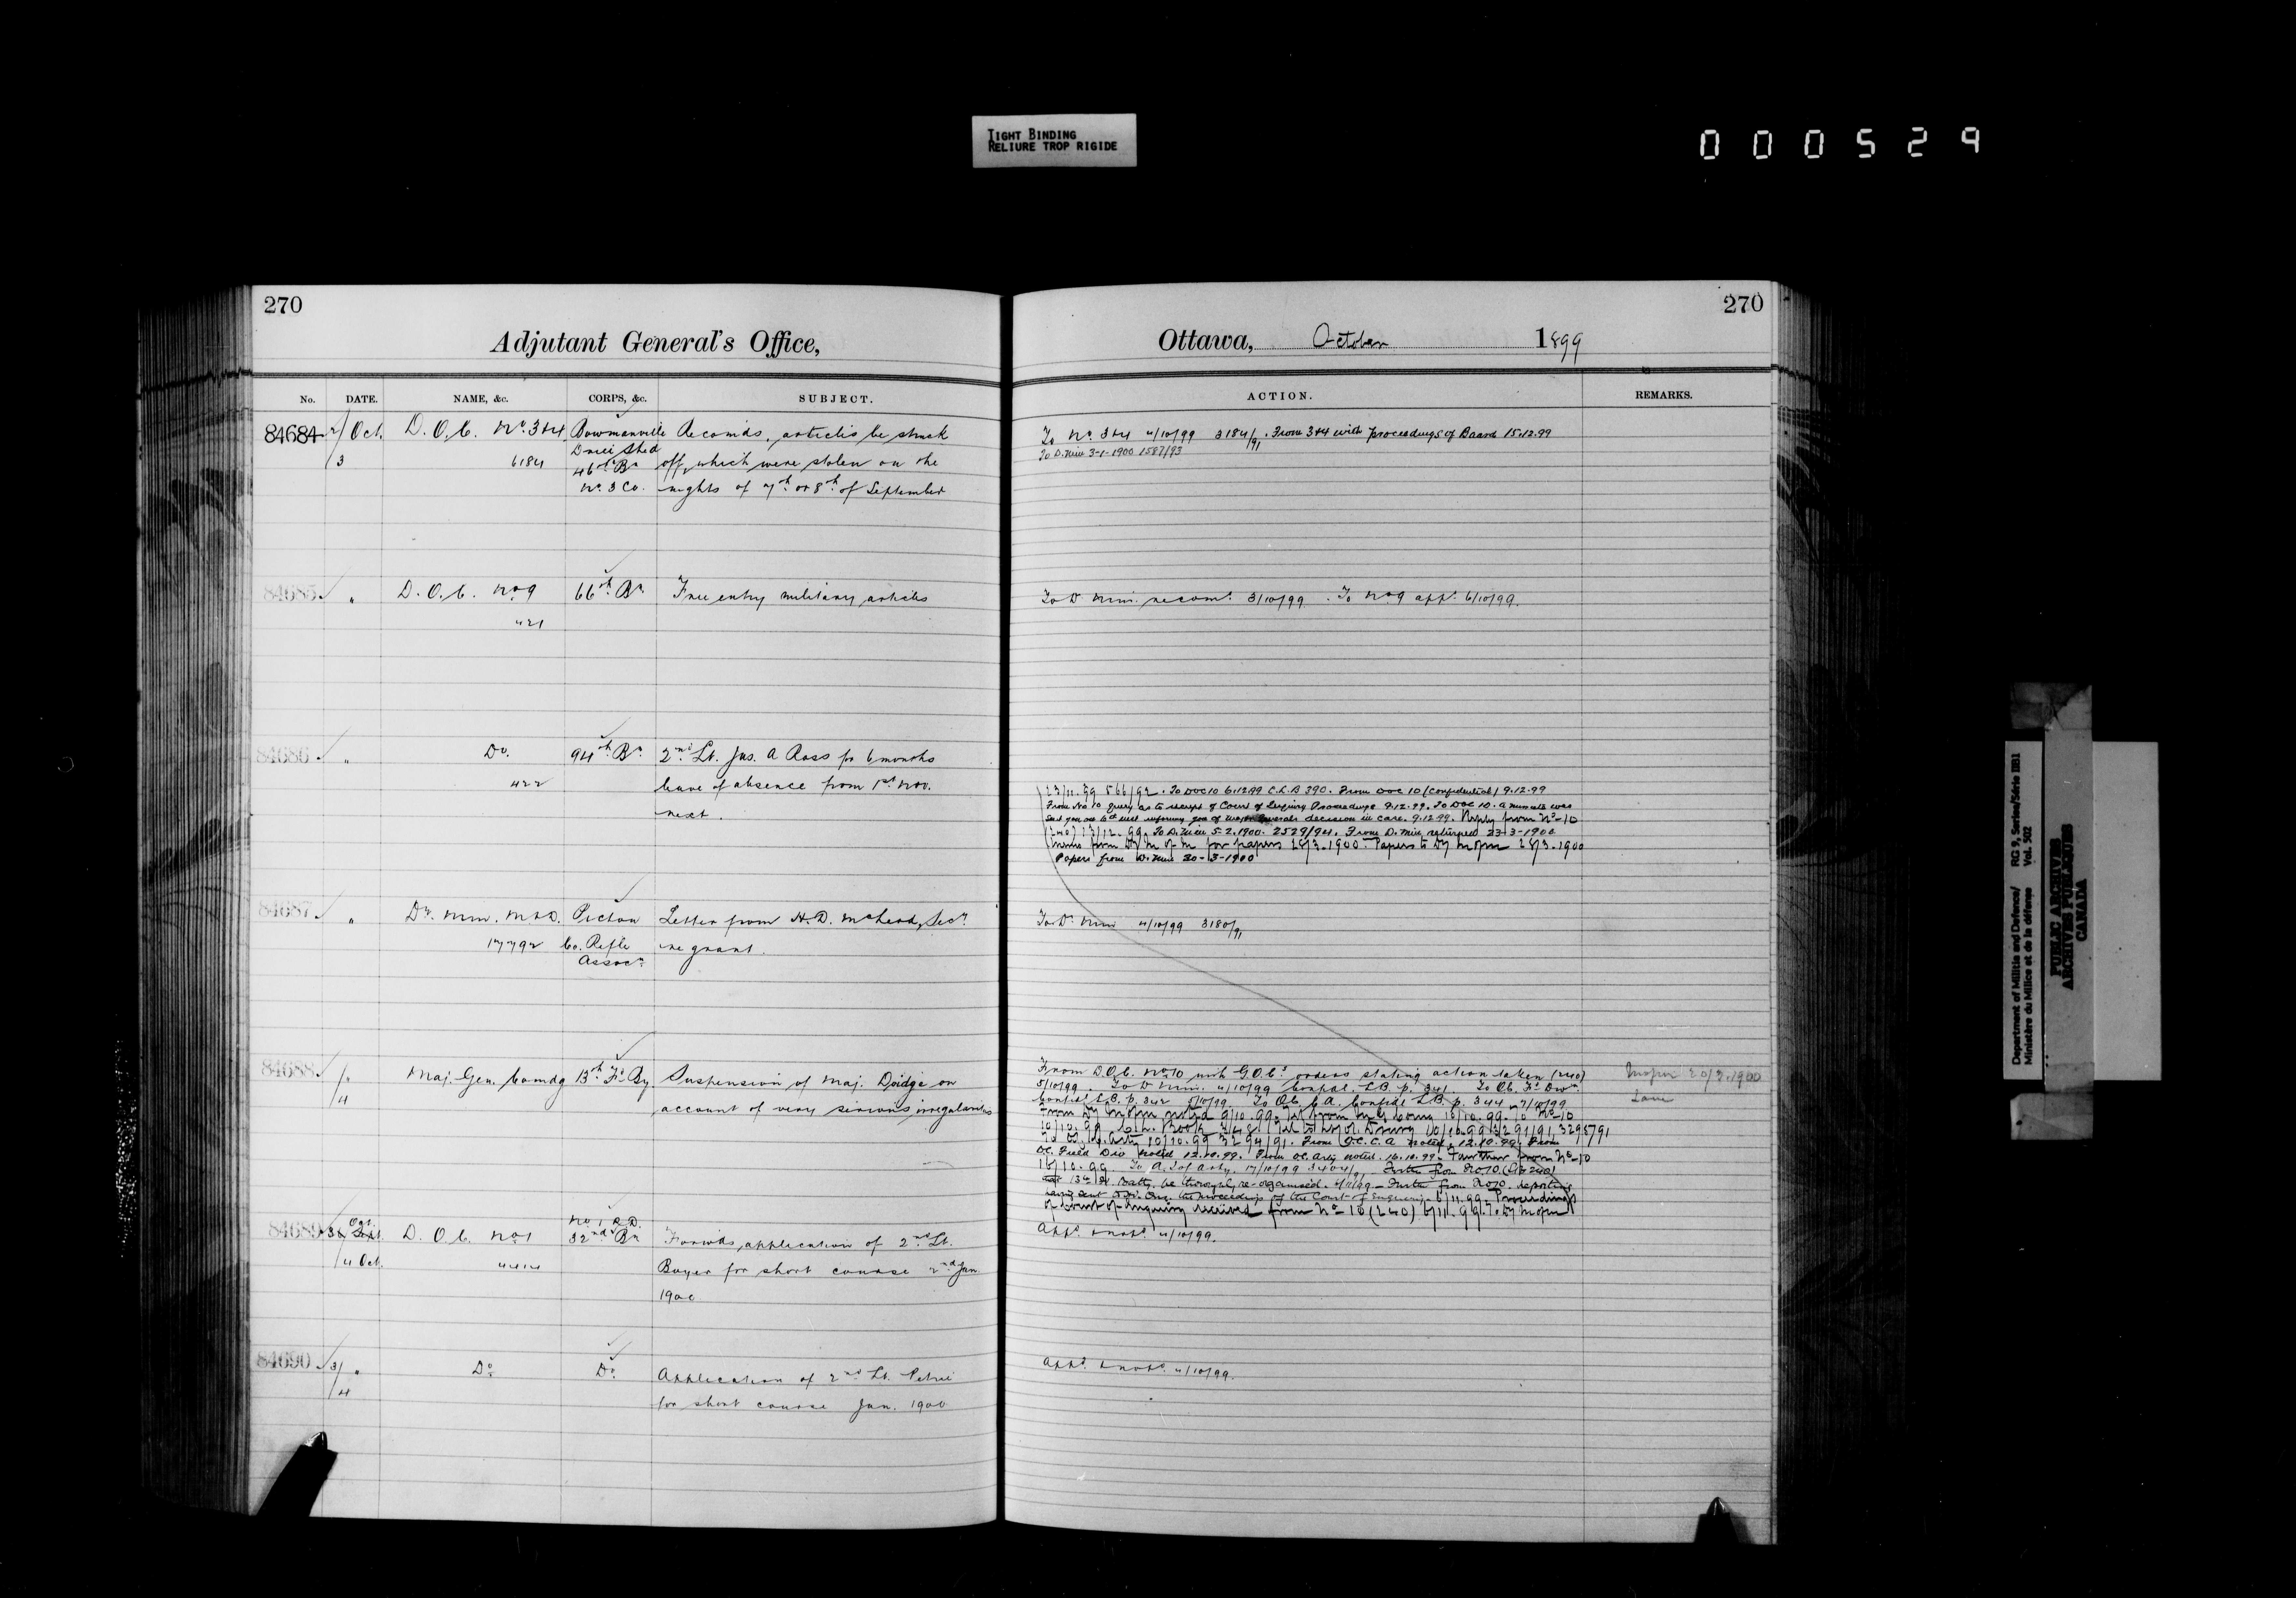 TIGHT BINDING
RELIURE TROP RIGIDE
000529
270
Adjutant General's Office,
No. DATE. NAME, &c. CORPS, &c. SUBJECT.
84684 2/3 Oct. D.O.C. No. 3+4 6184 Bowmanville Drill Shed 46th Bn No. 3 Co.
Recomds. articles be struck
off, which were stolen on the
nights of 7th or 8th of September
84685 " D.O.C. No 9 421 66th Bn
Free entry military articles
84686 " Do. 422 94th Bn.
2nd Lt. Jas. A Ross for 6 months
leave of absence from 1st Nov.
next.
84687 " Dy. Min. M&D. 17792 Pictou Co. Rifle Assocn.
Letter from H.D. McLeod, Secy.
re grant.
84688 "/4 Maj. Gen. Comdg 13th Fd By
Suspension of Maj. Doidge on
account of very serious irregularities
84689 3/4 Oct. D.O.C. No 1 No 1 R.D. 32nd Bn
Forwds. application of 2nd Lt.
for short course 2nd Jan
1900
84690 3/4 " Do Do.
Application of 2nd Lt. Petrie
for short course Jan. 1900
270
Ottawa, October 1899
ACTION. REMARKS.
To No. 3+4 4/10/99 3184/91. From 3+4 with proceedings of Board 15.12.99
To D. Min 3-1-1900 1587/93
To D. Min. recomd. 3/10/99. To No 9 appd. 6/10/99.
23/11.99 566/92. To DOC 10 6.12.99 C.L.B 390. From DOC 10 (Confidential) 9.12.99
From No 10 query as to receipt of Court of Inquiry Proceedings 9.12.99. To DOC 10. a minute was
sent you on 6th inst informing you of Major Generals decision in case. 9.12.99. Reply from No-10
(240) 13/12.99. To D. Min 5.2.1900. 2529/94. From D. Min, returned 23-3-1900
Memo from Dy M of M for papers 28/3.1900. Papers to Dy Mofm 28/3.1900
Papers from D. Min 30-3-1900
To D. Min 4/10/99 3180/91
From D.O.C. No 10 with G.O.C's orders stating action taken (240)
5/10/99. To D. Min. 4/10/99 Confdl. L.B. p. 341 To O.C. Fd Divn.
Confdl L.B. p. 342 5/10/99. To O.C. C.A. Confdl L.B. p. 344 7/10/99
From Dy Mofm noted 9/10.99. 10/10.99. To No-10
10/10.99
10/10.99 3294/91. From O.C. C.A noted. 12.10.99. From
OC. Field Div noted 12.10.99. From OC. Arty noted. 16.10.99. Further from No-10
16/10.99 17/10/99 3404/91 Further from No 10. (240)
13th Fd. Batty. be thoroughly re-organised. 4/11/99 Further from No 10. reporting
having sent the proceedings of the Court of Enquiry 6/11.99. Proceedings
of Court of Inquiry received from No-10 (240) 6/11.99. To Dy Mofm
Mofm 20/3.1900
Appd. & notd. 4/10/99.
Appd. & notd. 4/10/99.
Department of Militia and Defence/
Ministère du Milice et de la défense
RG 9, Series/Série IIB1
Vol. 502
PUBLIC ARCHIVES
ARCHIVES PUBLIQUES
CANADA